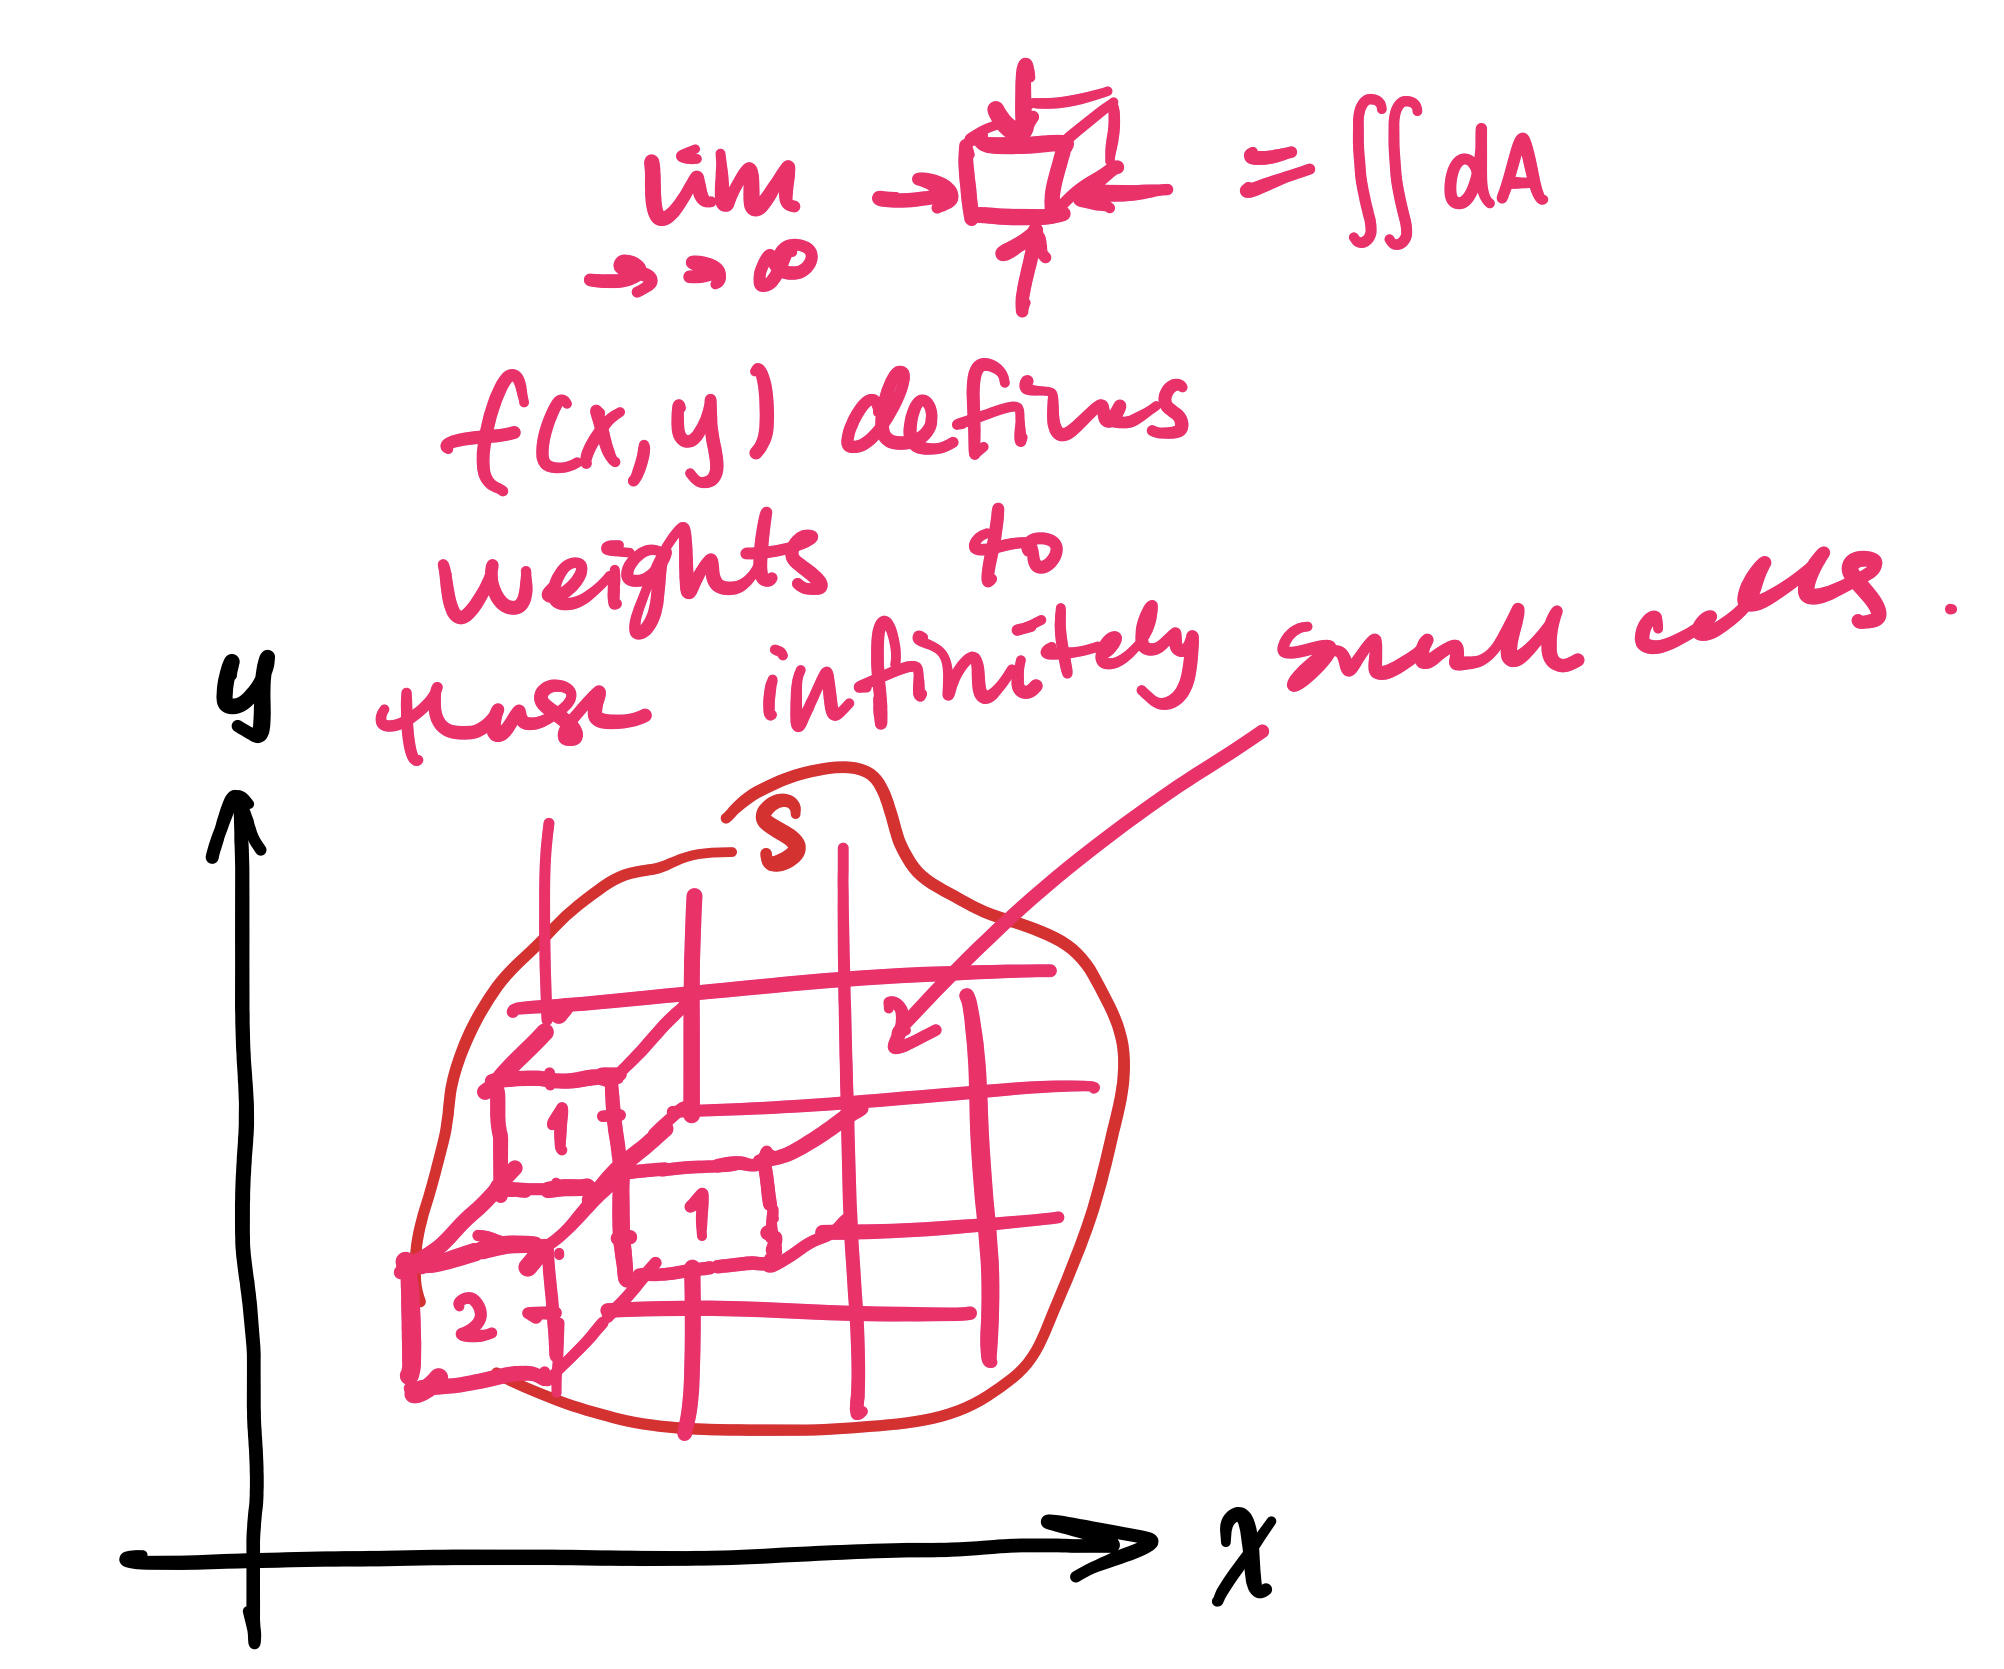 lim = ∬ dA
→ → ∞
f(x,y) defines
weights to
these infinitely small cells.
y
S
2
1
1
2
x